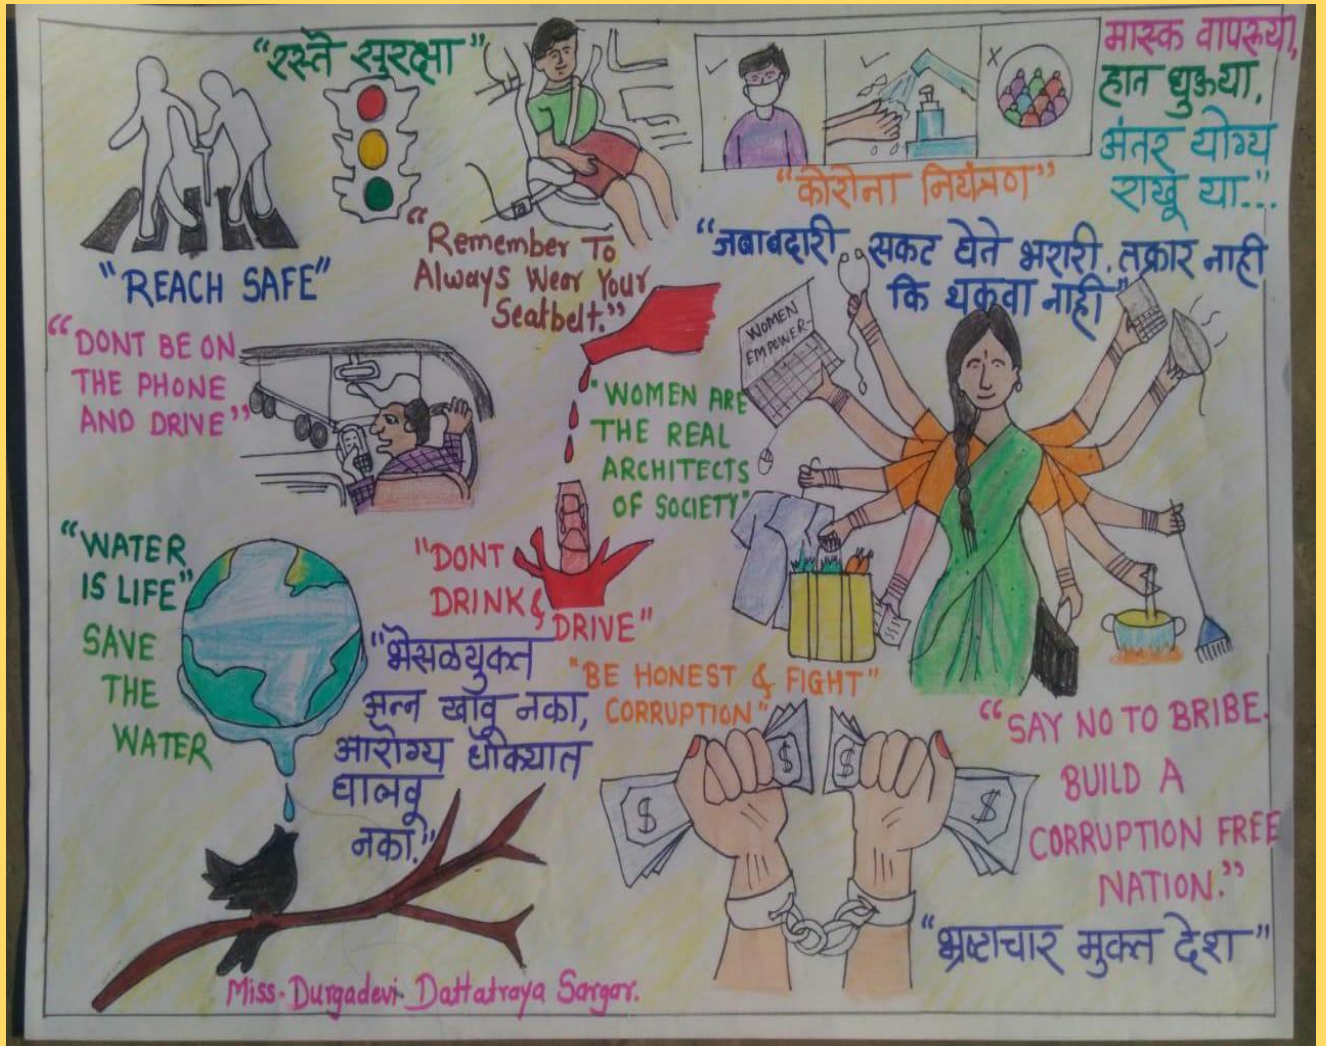 “रस्ते सुरक्षा”
“REACH SAFE”
“Remember To
Always Wear Your
Seatbelt.”
मास्क वापरूया,
हात धुऊया,
अंतर योग्य
राखू या...”
“कोरोना नियंत्रण”
“जबाबदारी सकट घेते भरारी. तक्रार नाही
कि थकवा नाही”
“DONT BE ON
THE PHONE
AND DRIVE”
WOMEN
EMPOWER-
“WOMEN ARE
THE REAL
ARCHITECTS
OF SOCIETY”
“WATER
IS LIFE”
SAVE
THE
WATER
“DONT
DRINK &
DRIVE”
“भेसळयुक्त
अन्न खावू नका,
आरोग्य धोक्यात
घालवू
नका.”
“BE HONEST & FIGHT”
CORRUPTION”
$
$
$
$
“SAY NO TO BRIBE.
BUILD A
CORRUPTION FREE
NATION.”
“भ्रष्टाचार मुक्त देश”
Miss. Durgadevi Dattatraya Sargar.